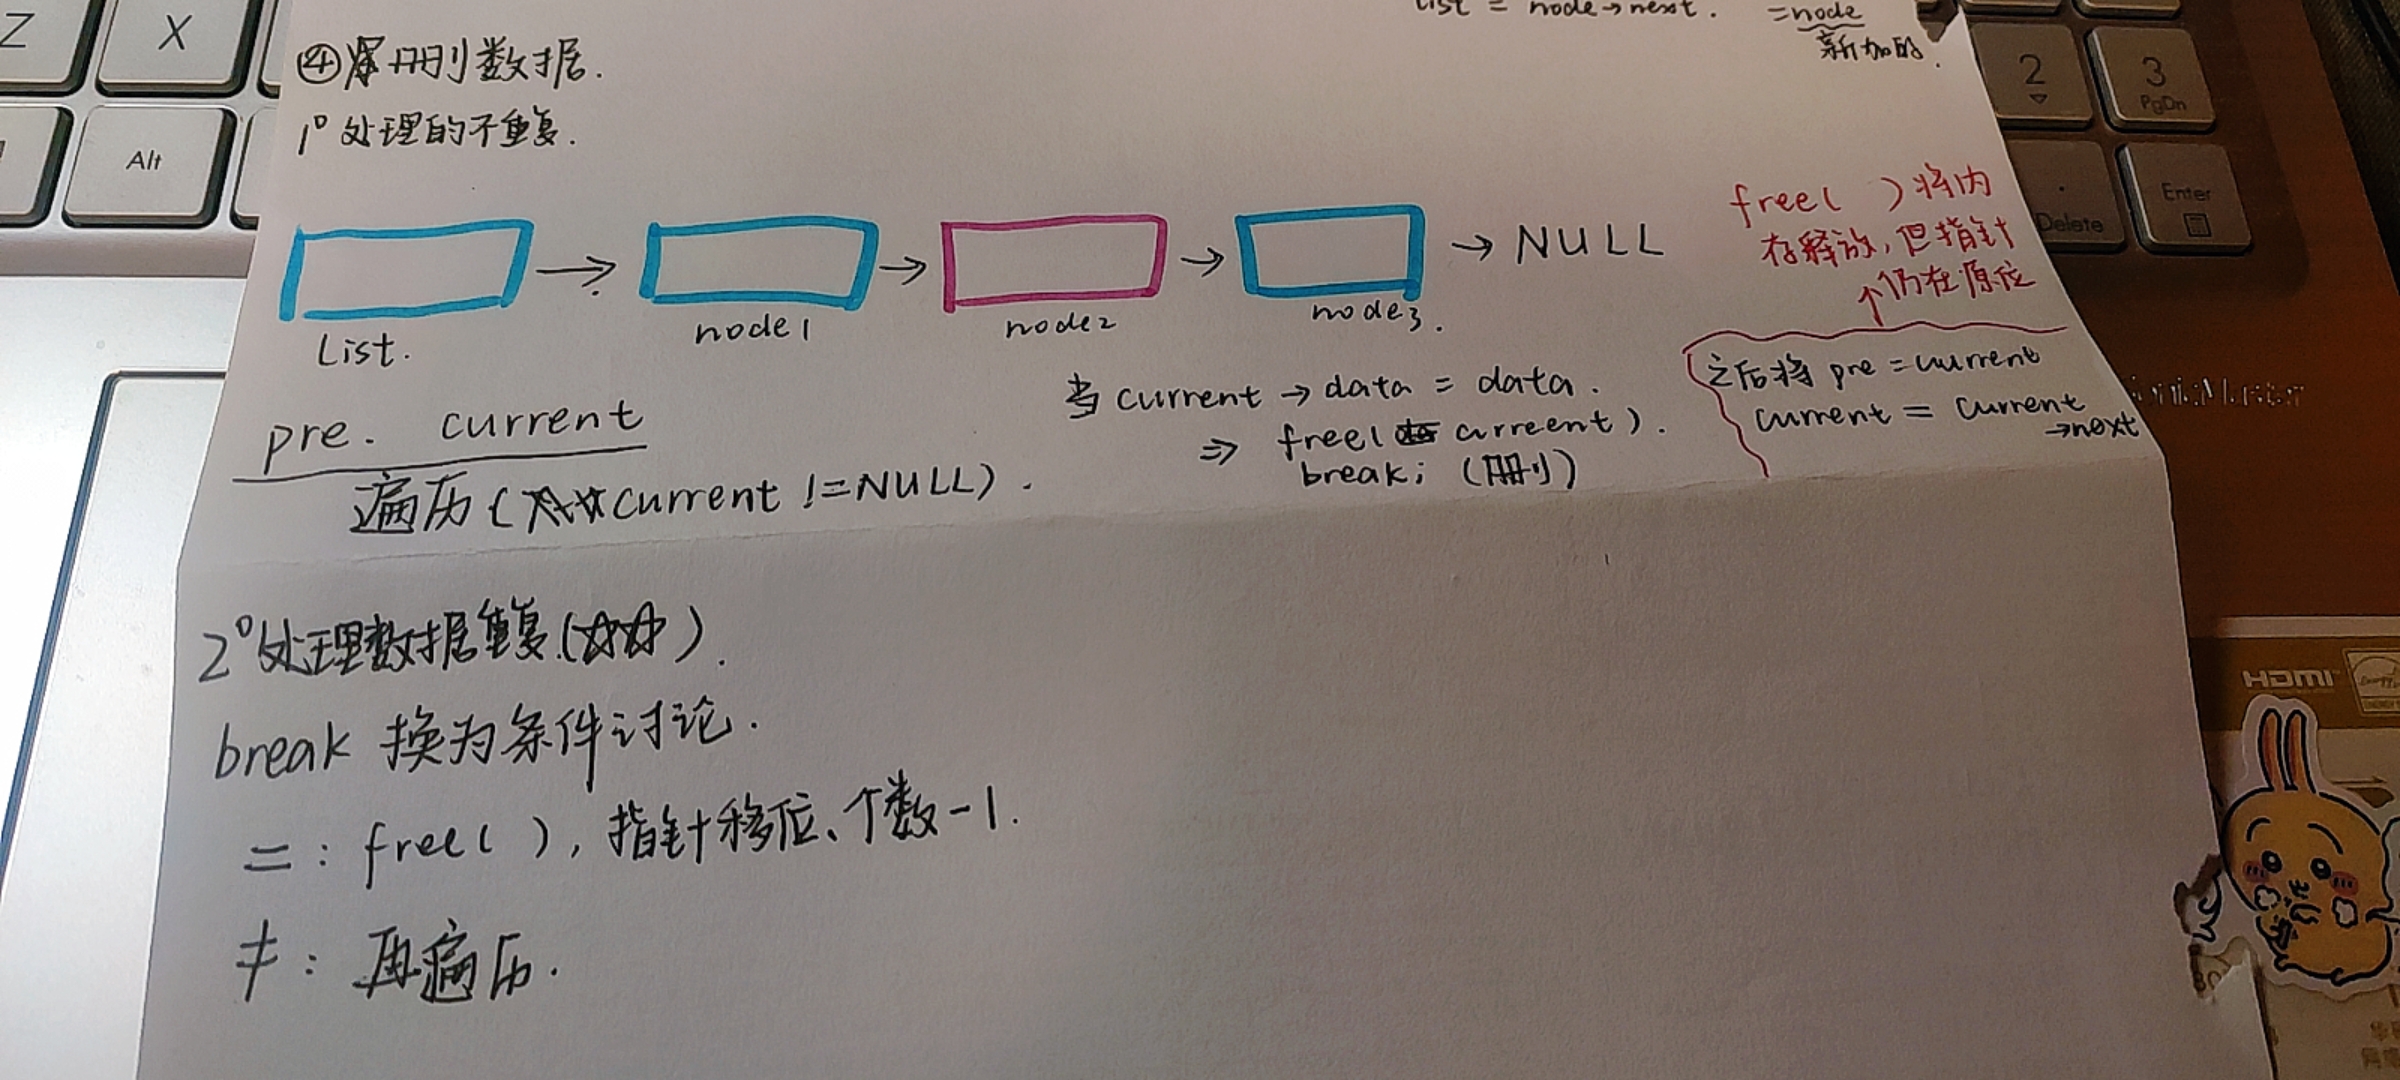 Z
X
Alt
2
3
PgDn
.
Delete
Enter
list = node→next. =node
新加的.
④删数据.
1° 处理的不重复.
List.
node1
node2
node3.
→ NULL
free( )将内
存释放,但指针
仍在原位
pre. current
遍历(current !=NULL).
当current→data = data.
⇒ free(curreent).
break; (删)
之后将 pre = current
current = current
→next
2°处理数据重复.(☆☆).
break 换为条件讨论.
=: free( ),指针移位、个数-1.
≠: 再遍历.
HDMI